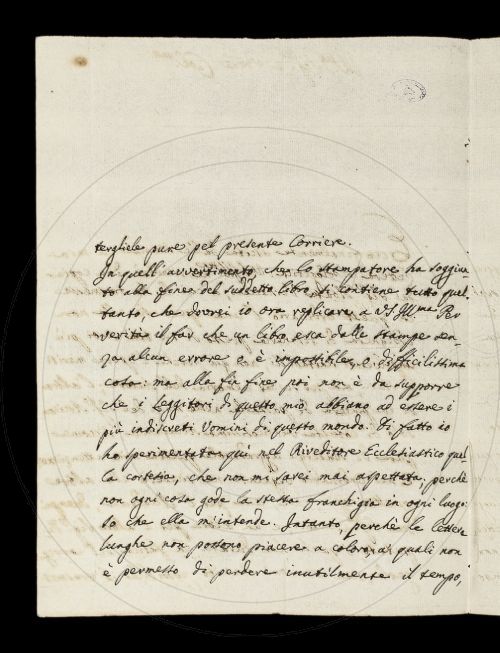 tergliele pure pel presente Corriere.
In quell'avvertimento, che lo stampatore ha soggiu-
to alla fine del suddetto libro, si contiene tutto quel
tanto, che dovrei io ora replicare a VS Illma Per
verità il far che un libro esca dalle stampe sen-
za alcun errore o è impossibile, o difficilissima
cosa: ma alla fin fine poi non è da supporre
che i Leggitori di questo mio abbiano ad essere i
più indiscreti Uomini di questo mondo. Di fatto io
ho sperimentata qui nel Riveditore Ecclesiastico quel-
la cortesia, che non mi sarei mai aspettata; perché
non ogni cosa gode la stessa franchigia in ogni luogo:
so che ella m'intende. Intanto, perché le lettere
lunghe non possono piacere a coloro, a quali non
è permesso di perdere inutilmente il tempo,